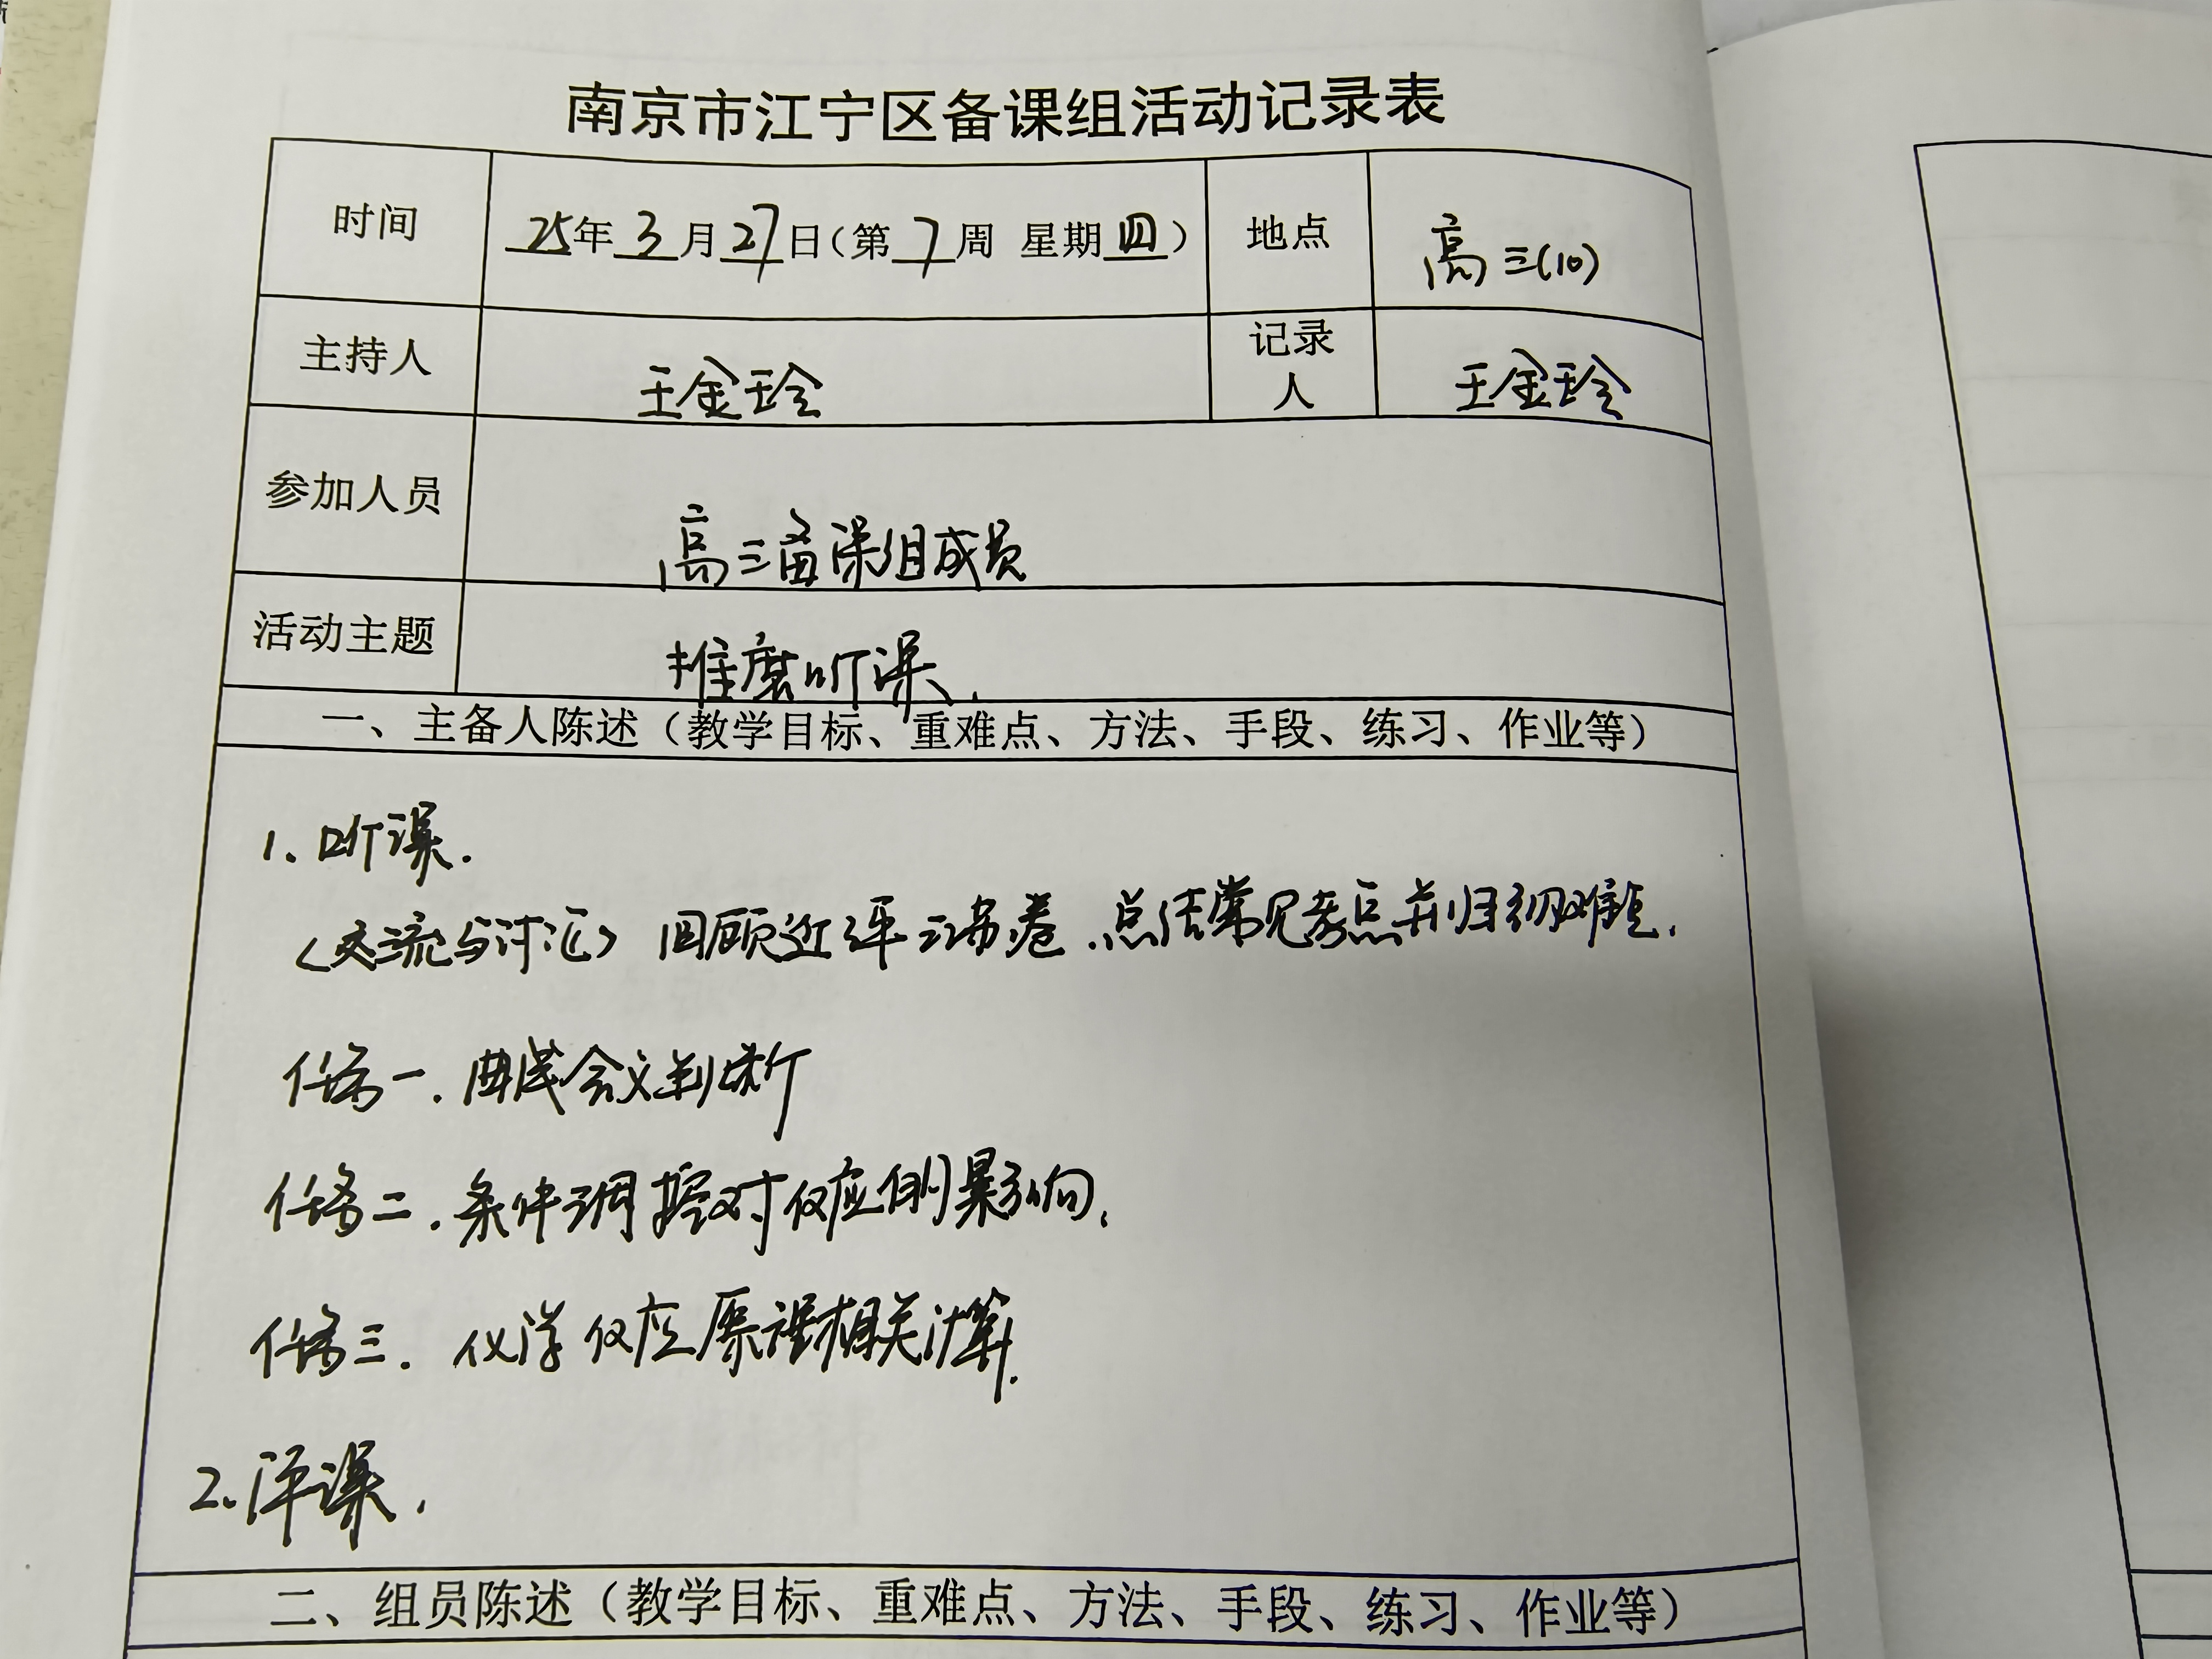 南京市江宁区备课组活动记录表
时间 25年3月27日（第7周 星期四） 地点 高三(10)
主持人 王金玲 记录人 王金玲
参加人员 高三备课组成员
活动主题 推磨听课.
一、主备人陈述（教学目标、重难点、方法、手段、练习、作业等）
1. 听课.
<交流与讨论> 回顾近年江苏卷.总结常见考点并归纳难点.
任务一.曲线含义判断
任务二.条件调控对反应的影响.
任务三.化学反应原理相关计算.
2.评课.
二、组员陈述（教学目标、重难点、方法、手段、练习、作业等）